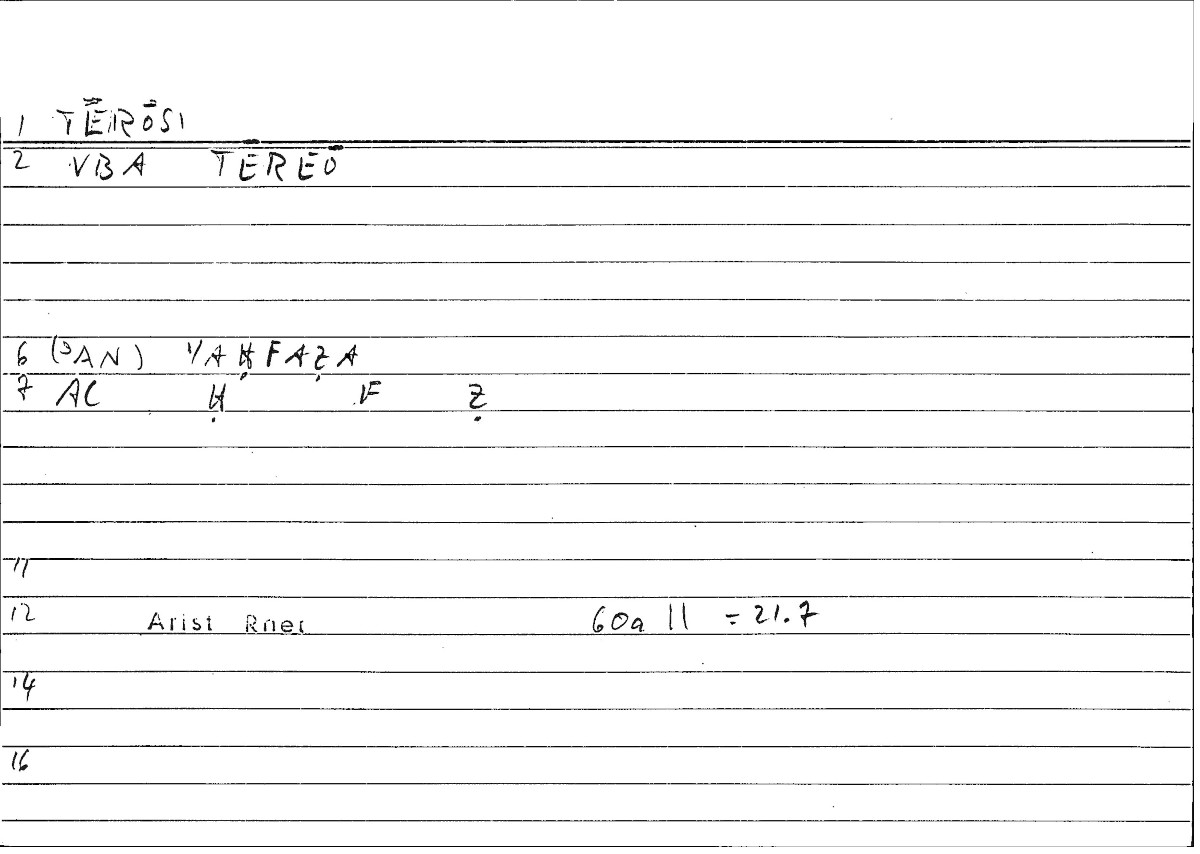 1 TĒRŌSI
2 VBA TĒREŌ
6 (ʾAN) YAḤFAẒA
7 AC Ḥ F Ẓ
11
12 Arist Rhet 60a 11 = 21.7
14
16